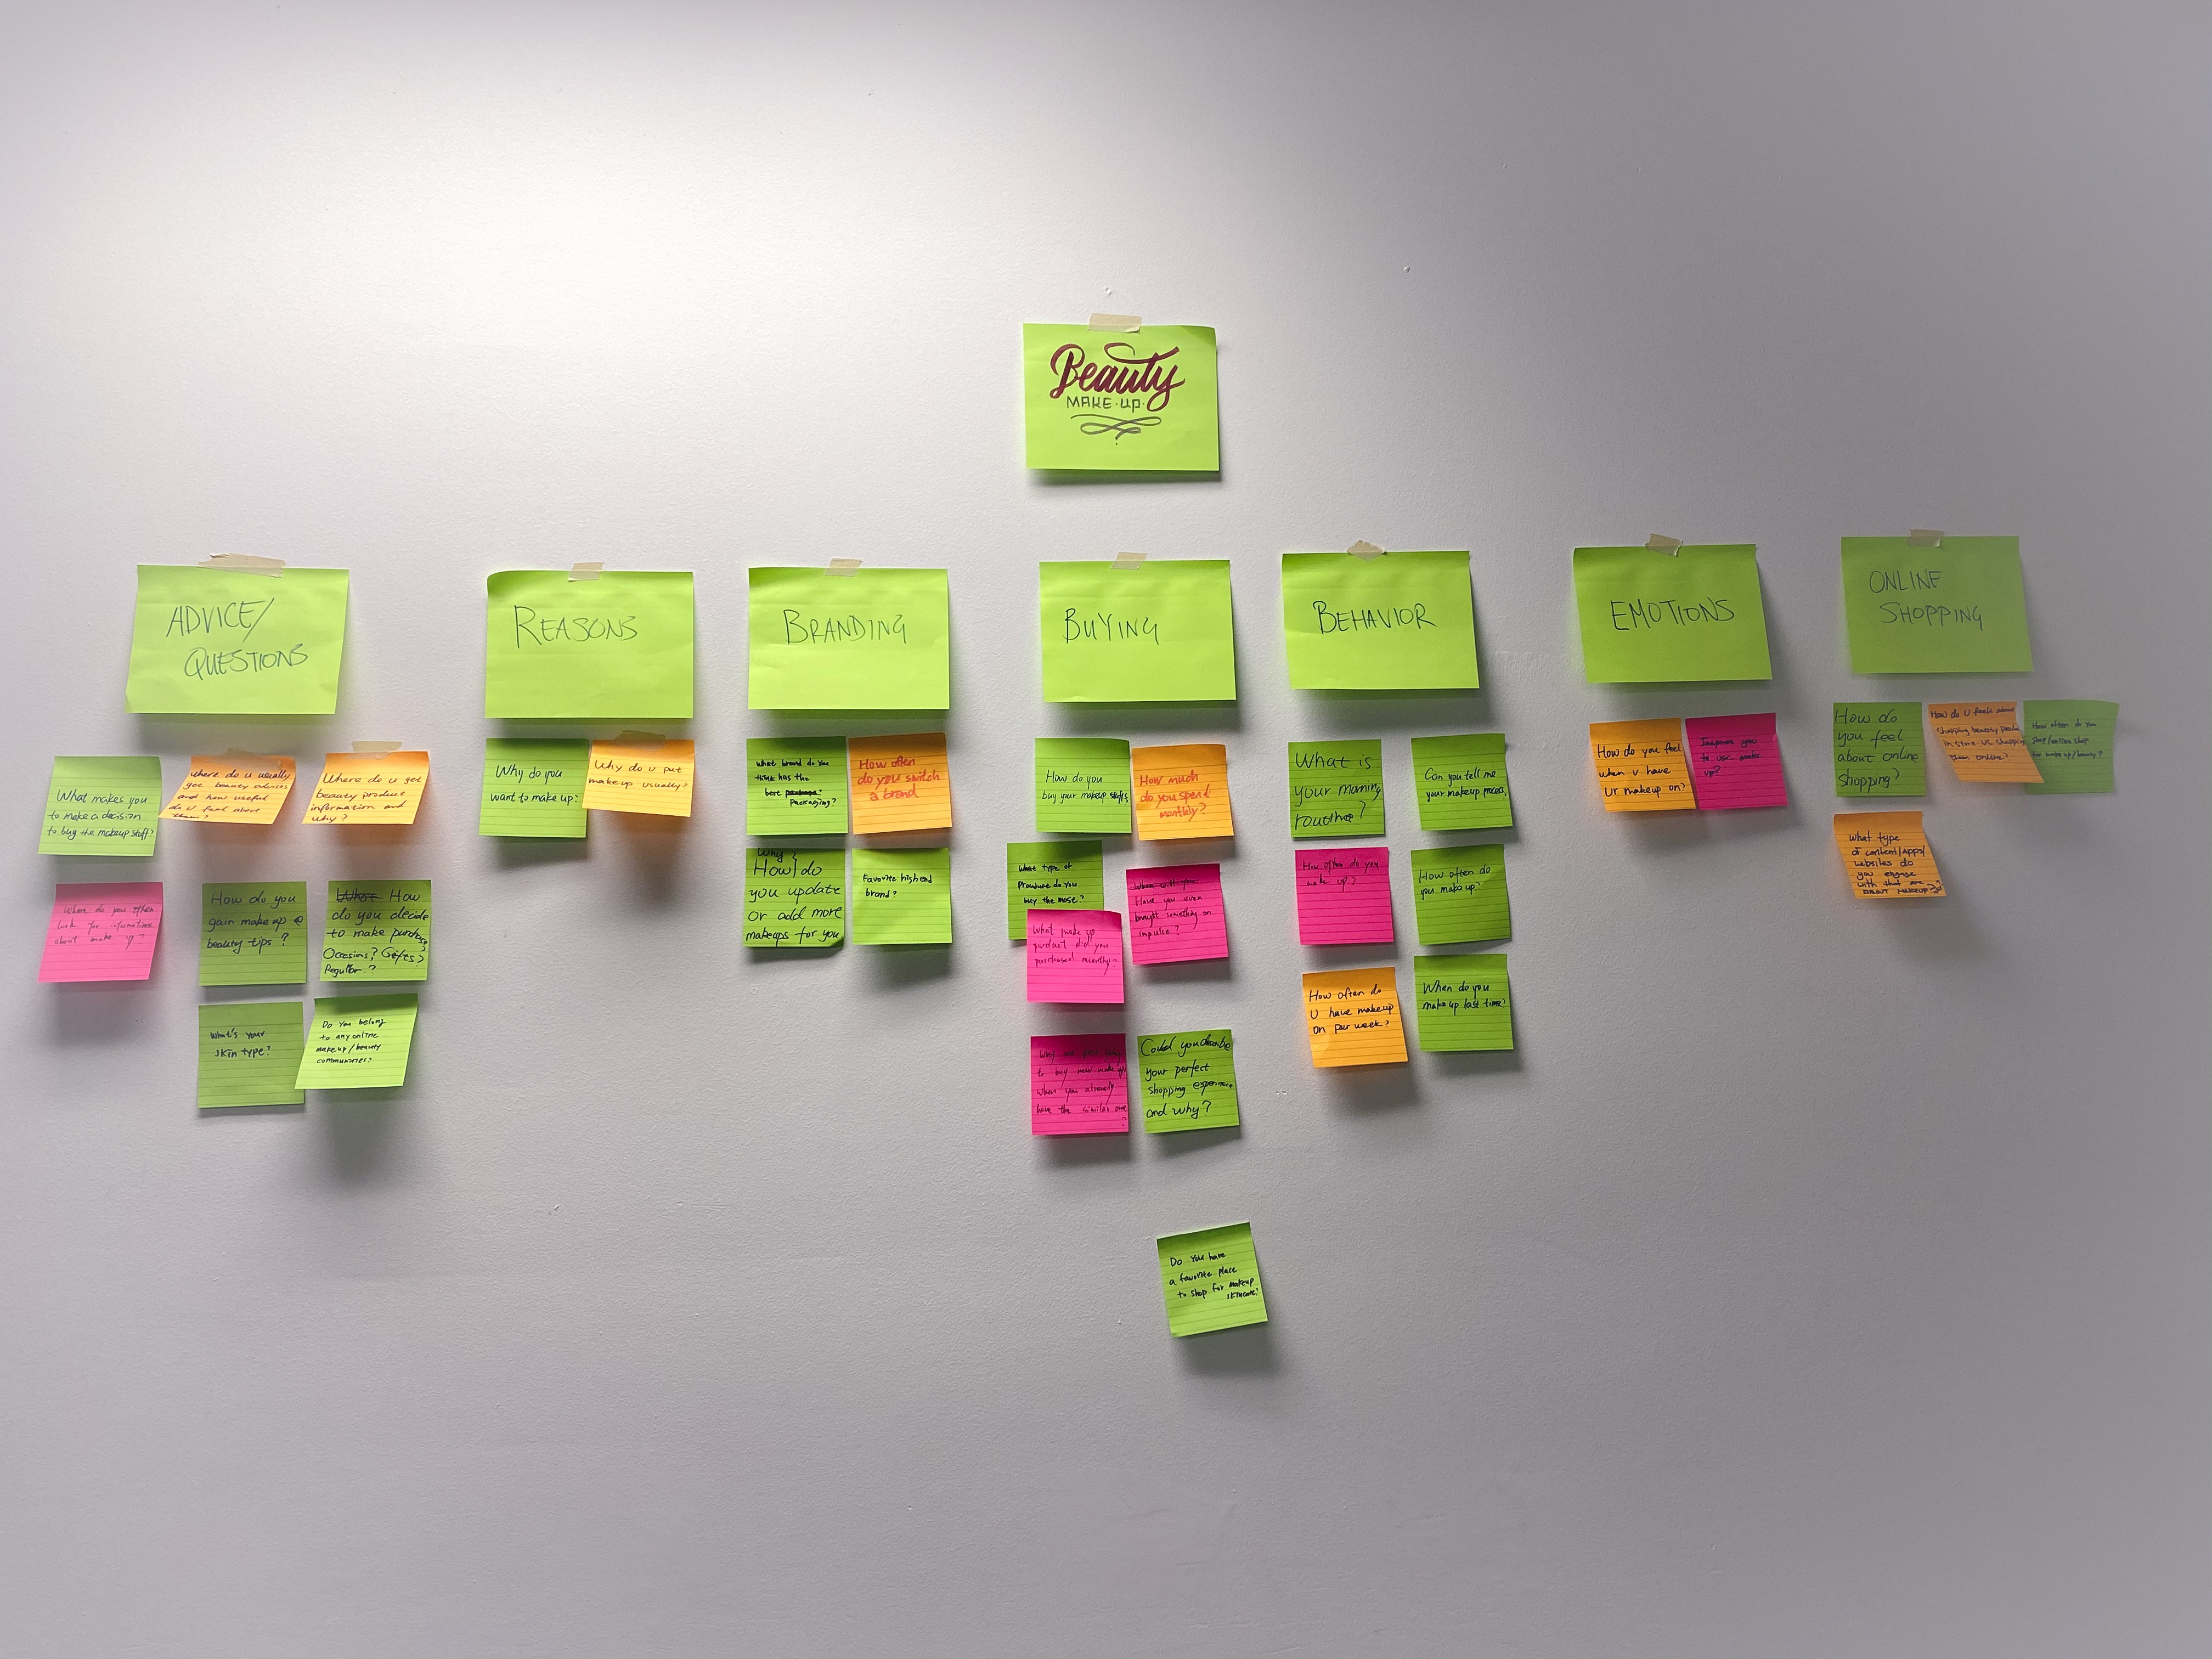 Beauty
MAKE-UP
ADVICE/
QUESTIONS
What makes you
to make a decision
to buy the makeup stuff?
where do u usually
get beauty advices
and how useful
do u feel about
them?
Where do u get
beauty product
information and
why?
Where do you often
look for informations
about make up?
How do you
gain makeup @
beauty tips?
What How
do you decide
to make purchase
Occasions? Gifts?
Regular.?
What's your
skin type?
Do you belong
to any online
makeup/beauty
communities?
REASONS
Why do you
want to make up?
Why do u put
makeup usually?
BRANDING
What brand do you
think has the
best
Packaging?
How often
do you switch
a brand
Why?
How do
you update
or add more
makeups for you
Favorite highend
brand?
BUYING
How do you
buy your makeup stuffs
How much
do you spend
monthly?
What type of
Product do you
buy the most?
Have you even
brought something on
impulse?
What make up
product did you
purchased recently?
Why are you going
to buy new make up
when you already
have the similar one
?
Could you describe
your perfect
shopping experience
and why?
Do you have
a favorite place
to shop for makeup
skincare?
BEHAVIOR
What is
your morning
routine?
Can you tell me
your makeup process,
How often do you
make up?
How often do
you makeup?
How often do
U have makeup
on per week?
When do you
makeup last time?
EMOTIONS
How do you feel
when u have
ur makeup on?
Inspires you
to use make
up?
ONLINE
SHOPPING
How do
you feel
about online
shopping?
How do u feels about
shopping beauty product
in store vs. shopping
them online?
How often do you
shop/online shop
for makeup/beauty?
What type
of content/Apps/
websites do
you engage
with that are
about makeup?